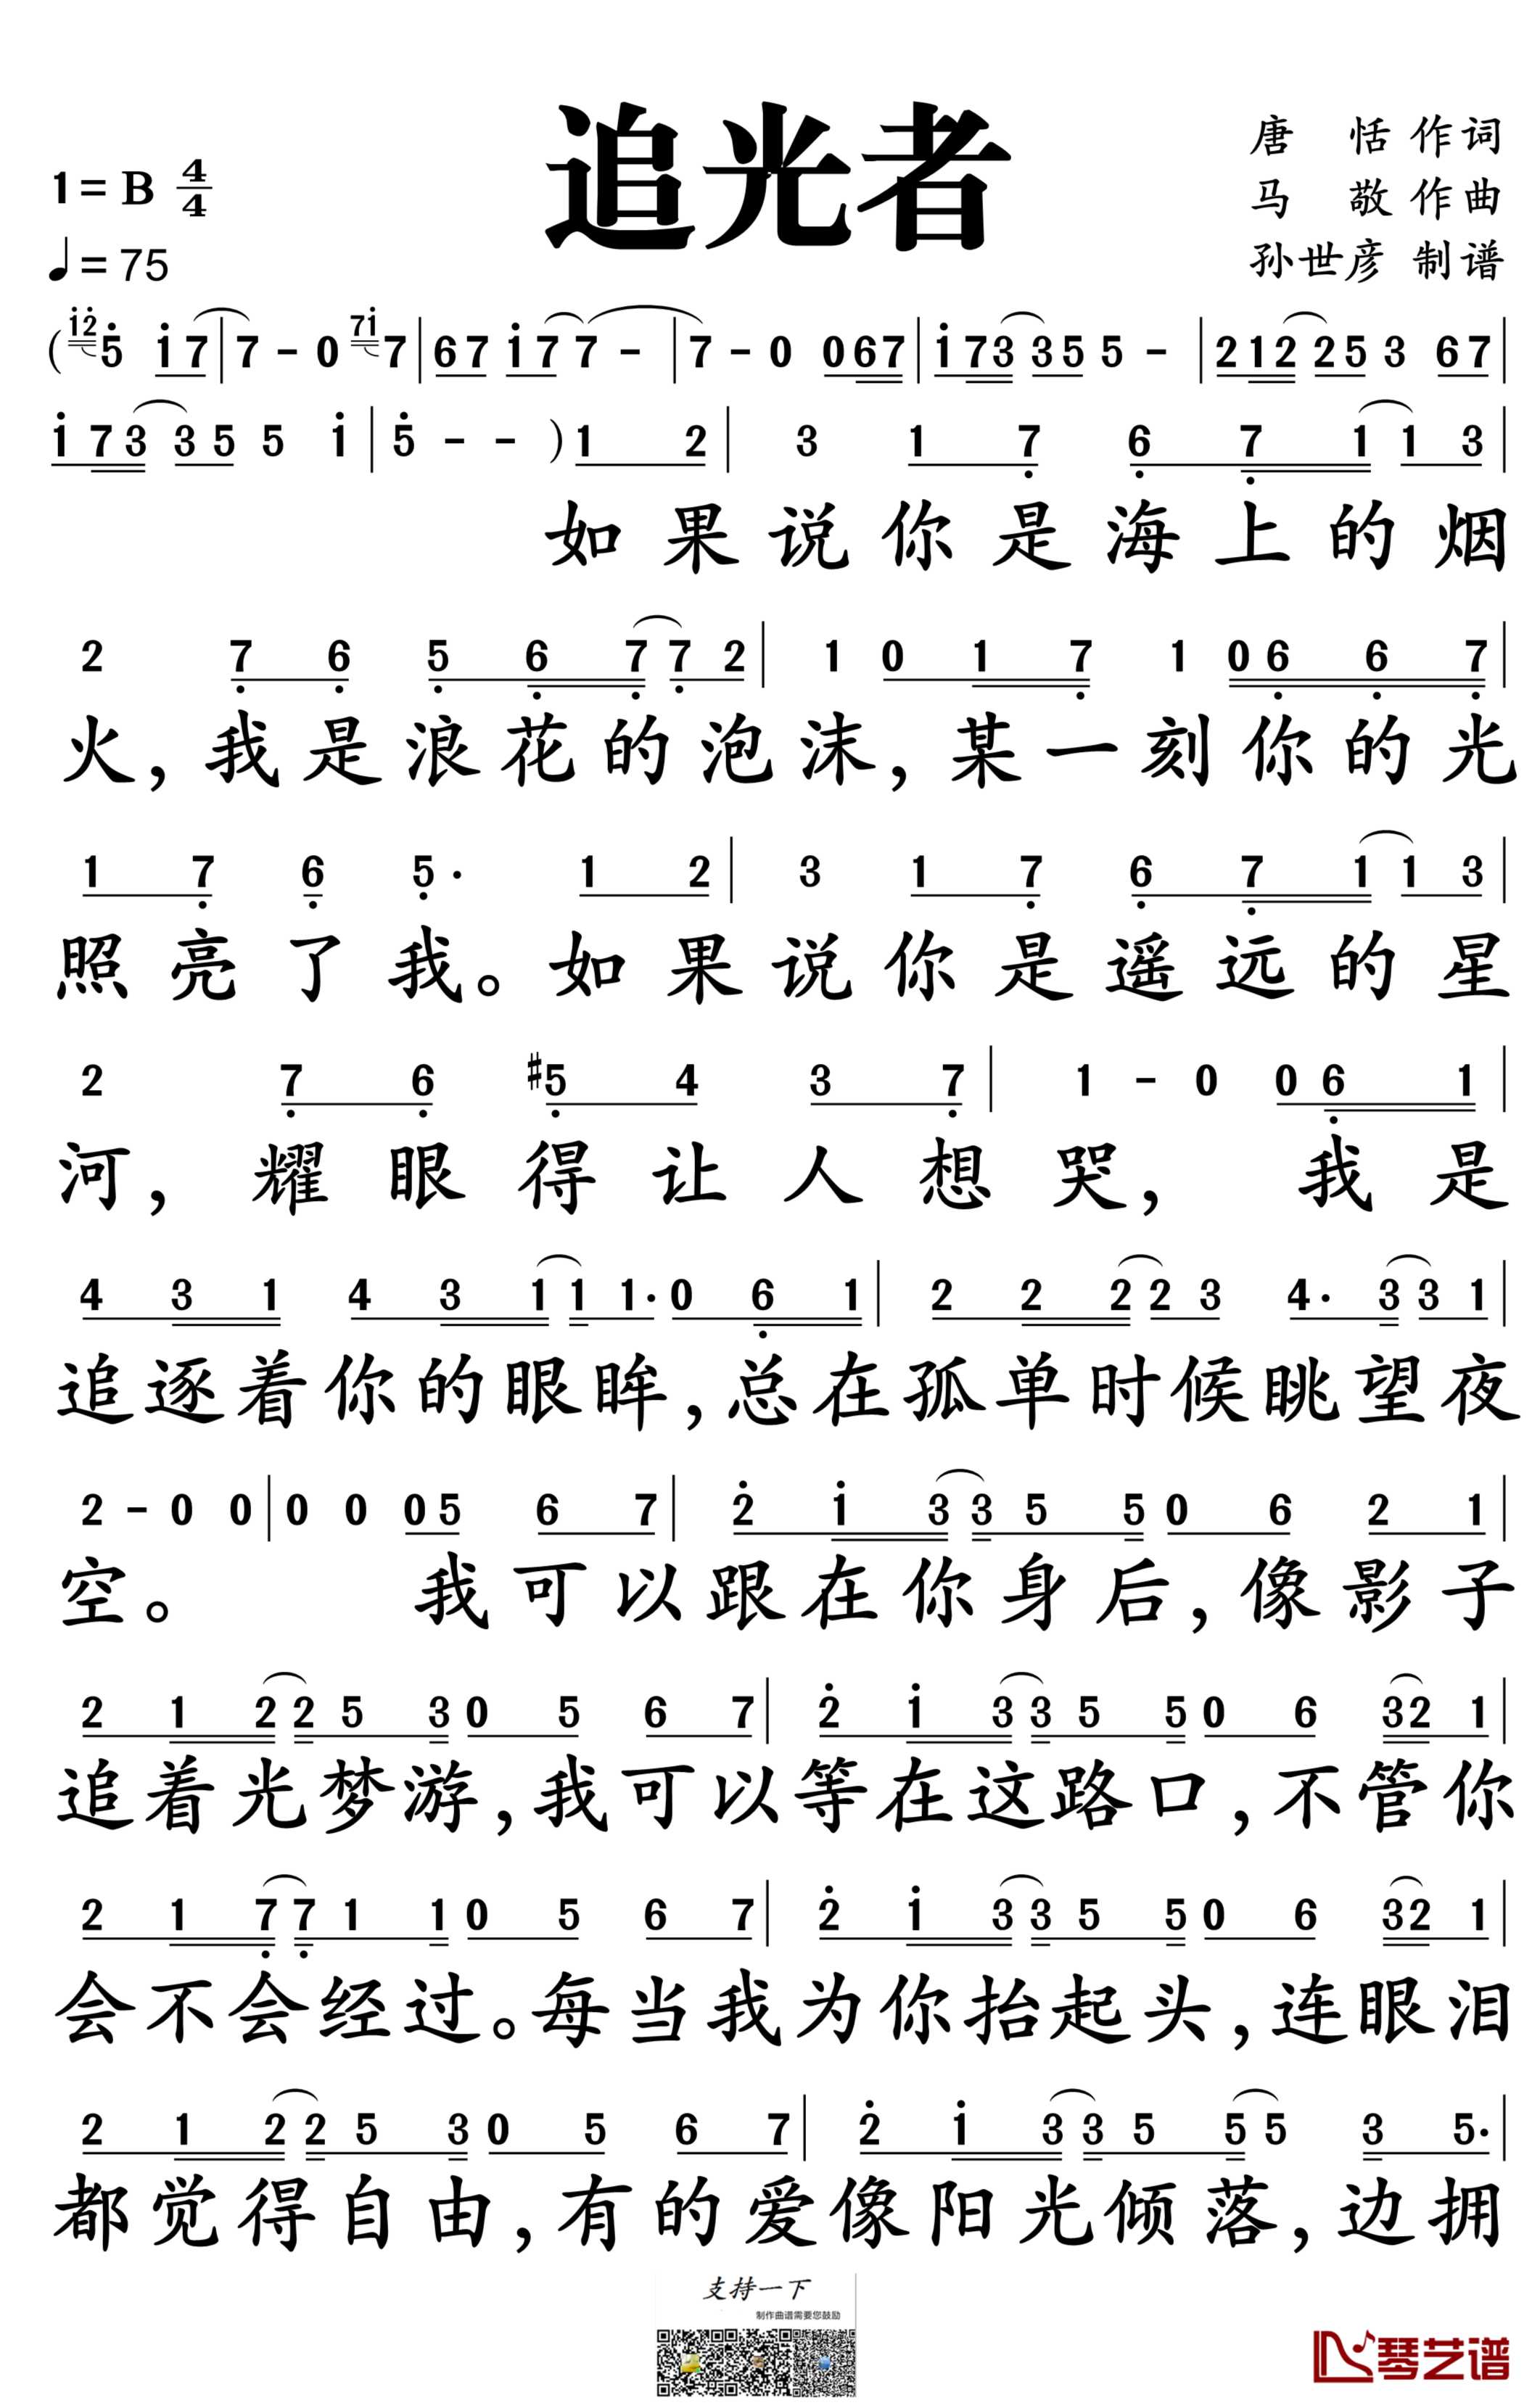 追光者
1=B 4/4
♩=75
唐 恬 作词
马 敬 作曲
孙世彦 制谱
( i̇2̇5̇ i̇7 | 7 - 0 7i̇7 | 67 i̇7 7 - | 7 - 0 067 | i̇73 35 5 - | 212 25 3 67 |
i̇73 35 5 i̇ | 5̇ - - ) 1 2 | 3 1 7̣ 6̣ 7̣ 1 1 3 |
如果说你是海上的烟
2 7̣ 6̣ 5̣ 6̣ 7̣ 7̣ 2 | 1 0 1 7̣ 1 0 6̣ 6̣ 7̣ |
火,我是浪花的泡沫,某一刻你的光
1 7̣ 6̣ 5̣· 1 2 | 3 1 7̣ 6̣ 7̣ 1 1 3 |
照亮了我。如果说你是遥远的星
2 7̣ 6̣ #5̣ 4 3 7̣ | 1 - 0 0 6̣ 1 |
河,耀眼得让人想哭,我是
4 3 1 4 3 1 1 1· 0 6̣ 1 | 2 2 2 2 3 4· 3 3 1 |
追逐着你的眼眸,总在孤单时候眺望夜
2 - 0 0 | 0 0 0 5 6 7 | 2̇ i̇ 3 3 5 5 0 6 2 1 |
空。我可以跟在你身后,像影子
2 1 2 2 5 3 0 5 6 7 | 2̇ i̇ 3 3 5 5 0 6 32 1 |
追着光梦游,我可以等在这路口,不管你
2 1 7̣ 7̣ 1 1 0 5 6 7 | 2̇ i̇ 3 3 5 5 0 6 32 1 |
会不会经过。每当我为你抬起头,连眼泪
2 1 2 2 5 3 0 5 6 7 | 2̇ i̇ 3 3 5 5 5 3 5· |
都觉得自由,有的爱像阳光倾落,边拥
支持一下
制作曲谱需要您鼓励
琴艺谱